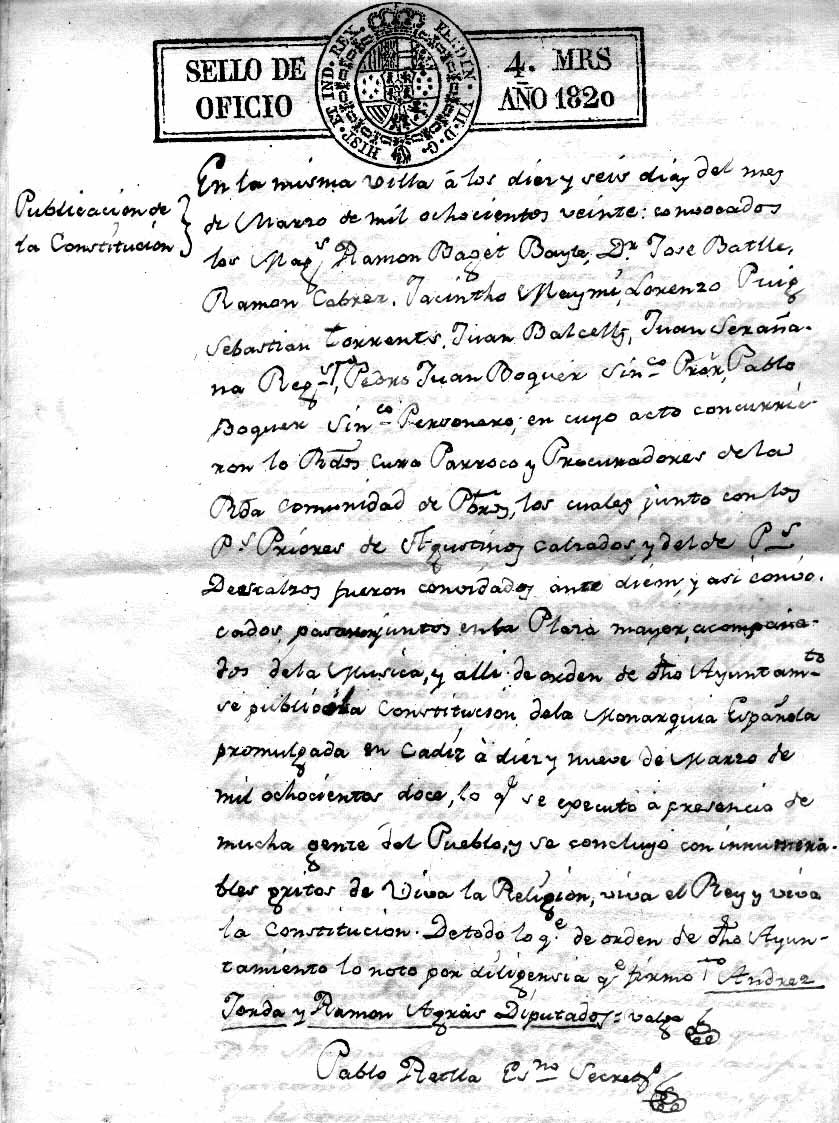 SELLO DE
OFICIO
HISP. ET IND. REX. FERDIN. VII. D. G.
4. MRS
AÑO 1820
Publicacion de
la Constitucion
En la misma Villa á los diez y seis dias del mes
de Marzo de mil ochocientos veinte: convocados
los Mag.s Ramon Baget Bayle, Dr. Jose Batlle,
Ramon Cabrer, Jacintho Maymi, Lorenzo Puig
Sebastian Torrents, Juan Balcells, Juan Seraña-
na Reg.s Pedro Juan Boquer Sin.co Pror, Pablo
Boquer Sin.co Personero; en cuyo acto concurrie-
ron lo Rdos Cura Parroco y Procuradores de la
Rda Comunidad de Pbros, los cuales junto con los
P.s Priores de Agustinos calzados, y del de P.s
Descalzos fueron convidados ante diém, y asi convo-
cados, pasaron juntos en la Plaza mayor, acompaña-
dos dela Musica, y alli de orden de dho Ayuntam.to
se publicó la Constitucion dela Monarquia Española
promulgada en Cadiz à diez y nueve de Marzo de
mil ochocientos doce, lo q.e se executó á presencia de
mucha gente del Pueblo, y se concluyo con innumera-
bles gritos de Viva la Religion, viva el Rey y viva
la Constitucion. De todo lo q.e de orden de dho Ayun-
tamiento lo noto por diligensia q.e firmo Andres
Jorda y Ramon Agrás Diputados = valga
Pablo Retlla Es.no Secret.o